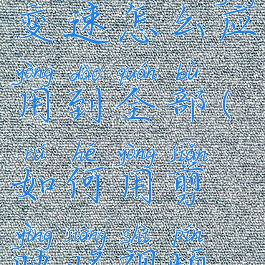 变速怎么应
yòng dào quán bù
用到全部(
rú hé yòng jiǎn
如何用剪
yìng jiāng shì pín